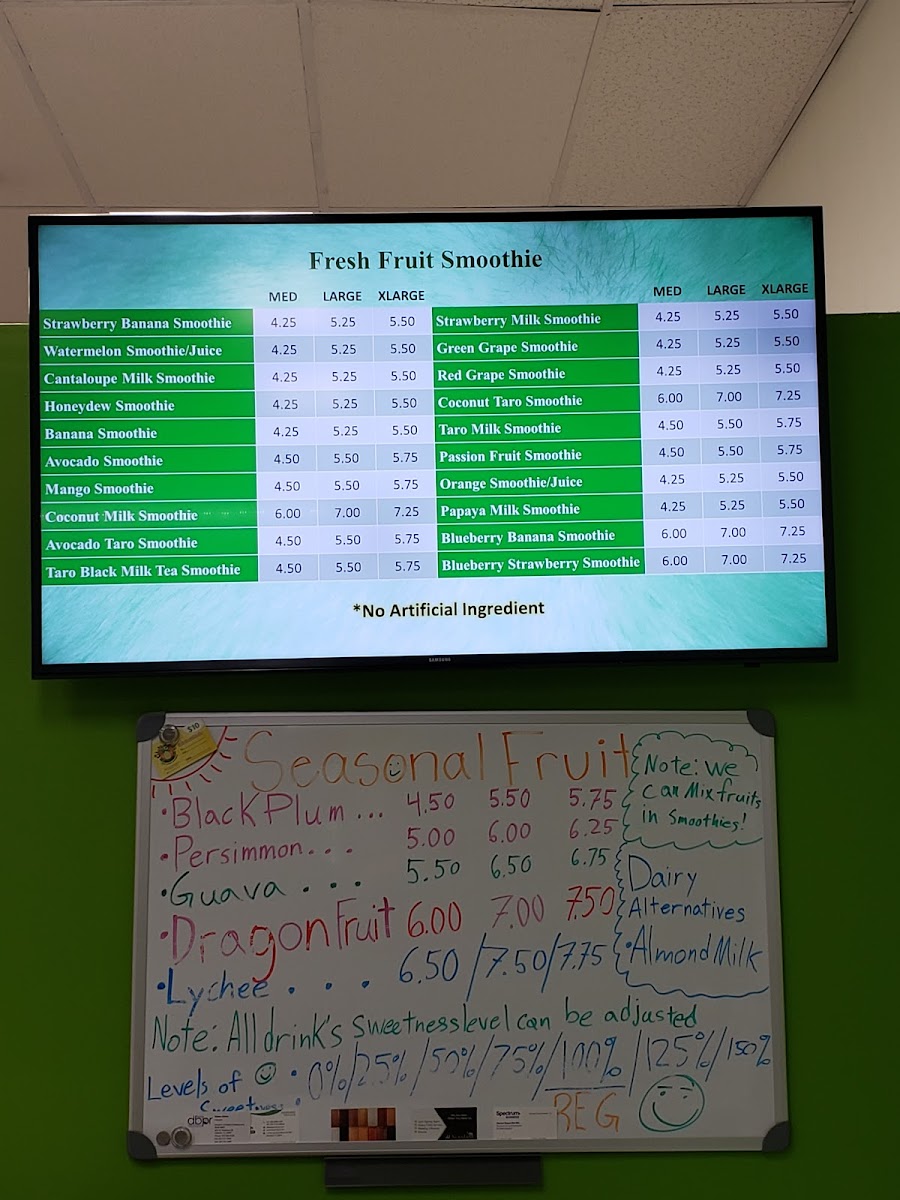 Fresh Fruit Smoothie
MED LARGE XLARGE
Strawberry Banana Smoothie 4.25 5.25 5.50
Watermelon Smoothie/Juice 4.25 5.25 5.50
Cantaloupe Milk Smoothie 4.25 5.25 5.50
Honeydew Smoothie 4.25 5.25 5.50
Banana Smoothie 4.25 5.25 5.50
Avocado Smoothie 4.50 5.50 5.75
Mango Smoothie 4.50 5.50 5.75
Coconut Milk Smoothie 6.00 7.00 7.25
Avocado Taro Smoothie 4.50 5.50 5.75
Taro Black Milk Tea Smoothie 4.50 5.50 5.75
MED LARGE XLARGE
Strawberry Milk Smoothie 4.25 5.25 5.50
Green Grape Smoothie 4.25 5.25 5.50
Red Grape Smoothie 4.25 5.25 5.50
Coconut Taro Smoothie 6.00 7.00 7.25
Taro Milk Smoothie 4.50 5.50 5.75
Passion Fruit Smoothie 4.50 5.50 5.75
Orange Smoothie/Juice 4.25 5.25 5.50
Papaya Milk Smoothie 4.25 5.25 5.50
Blueberry Banana Smoothie 6.00 7.00 7.25
Blueberry Strawberry Smoothie 6.00 7.00 7.25
*No Artificial Ingredient
SAMSUNG
$10
Seasonal Fruit
•Black Plum ... 4.50 5.50 5.75
•Persimmon... 5.00 6.00 6.25
•Guava . . . 5.50 6.50 6.75
•Dragon Fruit 6.00 7.00 7.50
•Lychee . . . 6.50 /7.50/7.75
Note: we
can Mix fruits
in Smoothies!
Dairy
Alternatives
•Almond Milk
Note: All drink's Sweetness level can be adjusted
Levels of : 0%/25%/50%/75%/100%/125%/150%
REG
abpr
Spectrum